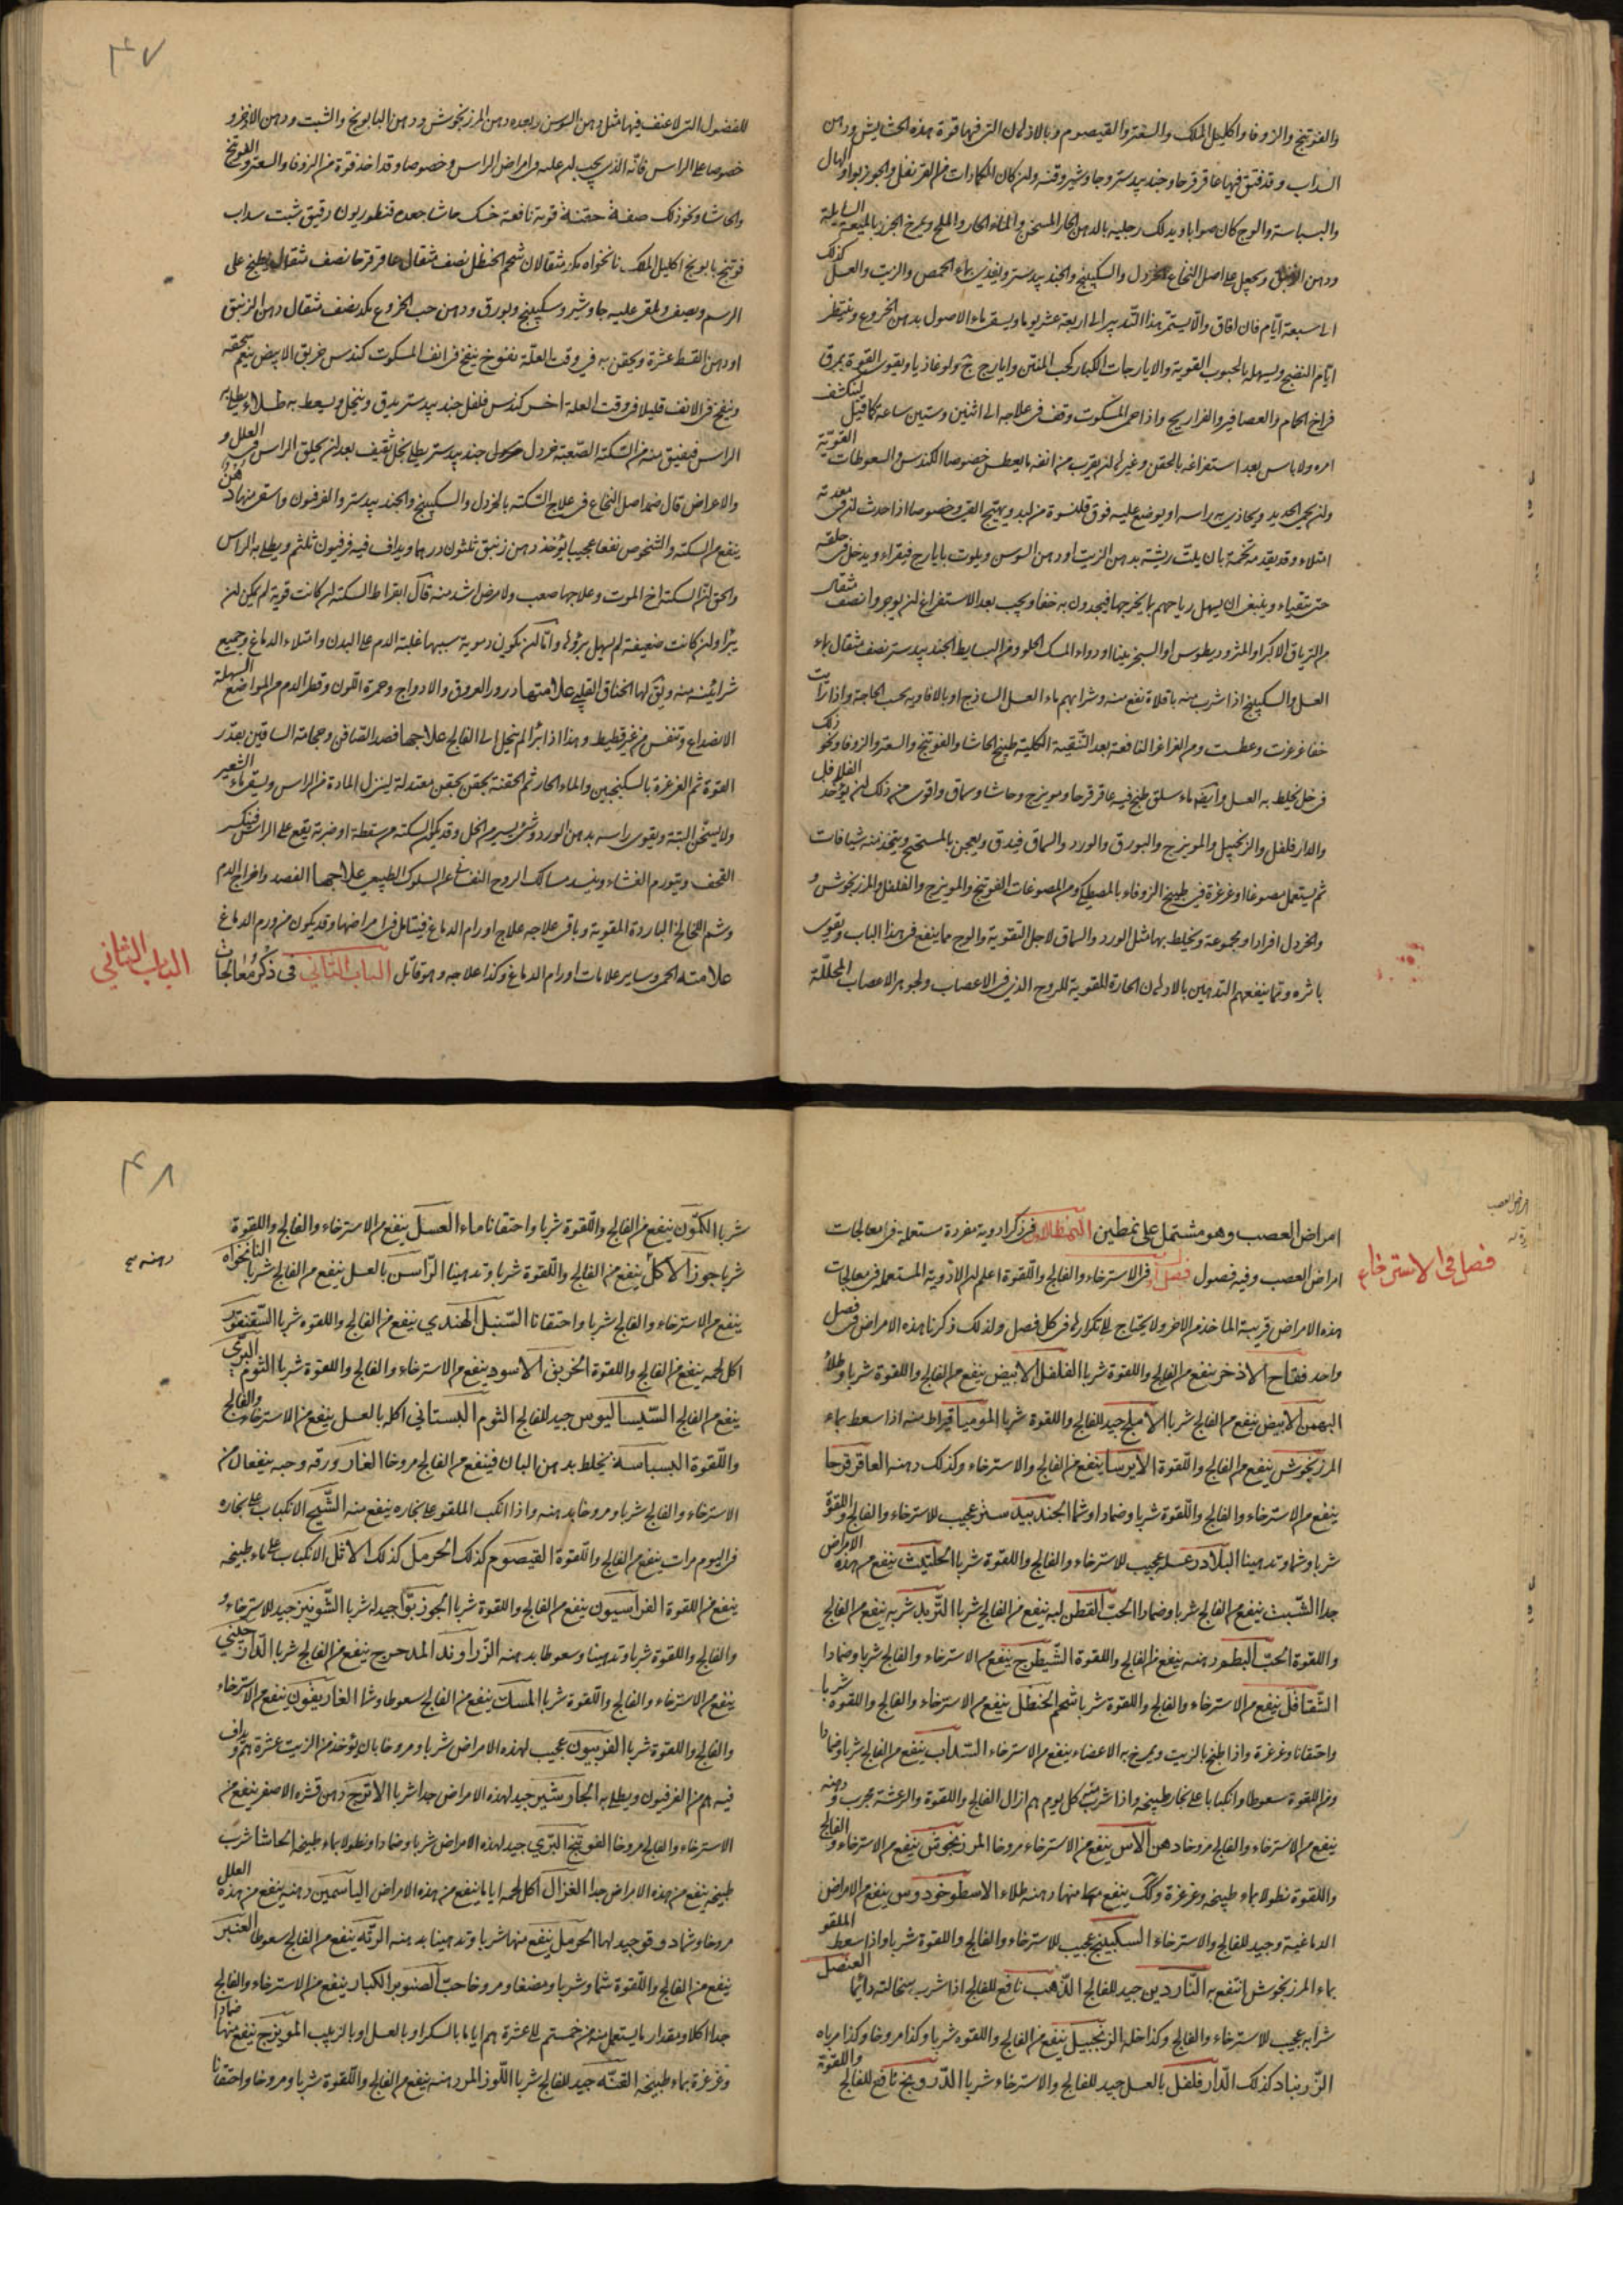 والفوتنج والزوفا واكليل الملك والسعتر والقيصوم وبالادهان التي فيها قوة هذه الحشايش ودهن
السداب وقد فتق فيها عاقرقرحا وجندبيدستر وجاوشير وقنه وان كان الكمادات من القرنفل والجوزبوا والهال
والبسباسة والوج كان صوابا ويدلك رجليه بالدهن الحار المسخن والماء الحار والملح ويمرخ الخرز بالميعة السايلة
ودهن الزنبق ويجعل على اصل النخاع الخردل والسكبينج والجندبيدستر ويغذي بماء الحمص والزيت والعسل كذلك
الى سبعة ايام فان افاق والا يستمر هذا التدبير الى اربعة عشر يوما ويسقى ماء الاصول بدهن الخروع وينتظر
ايام النضج ويسهل بالحبوب القوية والايارجات الكبار كحب المنتن وايارج ولوغاذيا ويقوى القوة بمرق
فراخ الحمام والعصافير والفراريج واذا حم المسكوت وقف في علاجه الى اثنين وستين ساعة كما قيل لينكشف
امره ولا باس بعد استفراغه بالحقن وغيرها ان يقرب من انفه ما يعطس خصوصا الكندس والسعوطات القوية
وان يحمى الحديد ويحاذى به راسه او يوضع عليه فوق قلنسوة من لبد ويهيج القئ وخصوصا اذا حدث ان في معدته
امتلاء وقد يقدمه تخمة بان يلت ريشة بدهن الزيت او دهن السوسن ويلوث بايارج فيقراء ويدخل في حلقه
حتى يتقياء وينبغي ان يسهل رياحهم بما يخرجها فيجدون به خفا ويجب بعد الاستفراغ ان يوجروا نصف مثقال
من الترياق الاكبر او المثروديطوس او السجزينيا او دواء المسك الحلو ومن البسايط الجندبيدستر نصف مثقال بماء
العسل والسكبينج اذا شرب منه باقلاة نفع منه وشرابهم ماء العسل الساذج او بالافاويه بحسب الحاجة واذا رايت
خفا غرغرت وعطست ومن الغراغر النافعة بعد التنقية الكلية طبيخ الحاشا والفوتنج والسعتر والزوفا ونحو ذلك
في خل يخلط به العسل وايضا ماء سلق طبخ فيه عاقرقرحا ومويزج وحاشا وسماق واقوى من ذلك ان يؤخذ الفلافل
والدارفلفل والزنجبيل والمويزج والبورق والورد والسماق فيدق ويعجن بالمستحيح ويتخذ منه شيافات
ثم يستعمل مضوغا او غرغرة في طبيخ الزوفاء بالمصطكي ومن الممضوغات الفوتنج والمويزج والفلفل والمرزنجوش و
والخردل افرادا ومجموعة ويخلط بها مثل الورد والسماق لاجل التقوية والوج مما ينفع في هذا الباب ويقوى
باثره ومما ينفعهم التدهين بالادهان الحارة المقوية للروح الذي في الاعصاب ولجوهر الاعصاب المحللة
٤٧
للفضول التي لا عنف فيها مثل دهن السوسن وبعده دهن المرزنجوش ودهن البابونج والشبت ودهن الاذخر و
خصوصا على الراس فانه الذي يجب ان عليه في امراض الراس وخصوصا وقد اخذ قوة من الزوفا والسعتر والفوتنج
والحاشا ونحو ذلك صفة حقنة قوية نافعة حسك حاشا جعده قنطوريون دقيق شبت سداب
فوتنج بابونج اكليل الملك نانخواه مكد مثقالان شحم الحنظل نصف مثقال عاقرقرحا نصف مثقال يطبخ على
الرسم ويصفى ويلقى عليه جاوشير وسكبينج وبورق ودهن حب الخروع مكد نصف مثقال دهن الزنبق
او دهن القسط عشرة ويحقن به في وقت العلة نفوخ ينفخ في انف المسكوت كندس خربق الابيض ينعم سحقه
وينفخ في الانف قليلا في وقت العلة اخر كندس فلفل جندبيدستر يدق وينخل ويسعط به طلاء يطلى به
الراس فيفيق منه من السكتة الصعبة خردل جندبيدستر يطلى بخل ثقيف بعد ان يحلق الراس في العلل و
والاعراض قال ضماد اصل النخاع في علاج السكته بالخردل والسكبينج والجندبيدستر والفرفيون واسقى منها دهن
ينفع من السكته والشخوص نفعا عجيبا يؤخذ دهن زنبق ثلثون درهما ويداف فيه فرفيون ثلثه ويطلى به الراس
والحق ان السكته اخ الموت وعلاجها صعب ولا مرض اشد منه قال ابقراط السكته ان كانت قوية لم يمكن ان
يبرأ وان كانت ضعيفة لم يسهل برؤها واما ان يكون دموية سببها غلبة الدم على البدن وامتلاء الدماغ وجميع
شرائينه منه ويق لها الخناق القلبي علامتها درور العروق والاوداج وحمرة اللون وقطر الدم من المواضع السهلة
الانصداع وتنفس من غير قطيط وهذا اذا برأ لم ينحل الى الفالج علاجها فصد الصافن وحجامة الساقين بقدر
القوة ثم الغرغرة بالسكنجبين والماء الحار ثم الحقنة بحقن معتدلة لينزل المادة من الراس ويسقى ماء الشعير
ولا يسخن البتة ويقوى راسه بدهن الورد وشئ يسير من الخل وقد يكون السكته من سقطة او ضربة يقع على الراس فينكسر
القحف ويتورم الغشاء وينسد مسالك الروح النفساني عن السلوك الطبيعي علاجها الفصد واخراج الدم
وشم اللخالخ الباردة المقوية وباقي علاجه علاج اورام الدماغ فيتامل في امراضها وقد يكون من ورم الدماغ
علامته الحمى وساير علامات اورام الدماغ وكذا علاجه وهو قاتل الباب الثاني في ذكر معالجات
الباب الثاني
امراض العصب وهو مشتمل على نمطين النمط الاول في ذكر ادوية مفردة مستعملة في معالجات
امراض العصب وفيه فصول فصل في الاسترخاء والفالج واللقوة اعلم ان الادوية المستعملة في معالجات
فصل في الاسترخاء
هذه الامراض قريبة الماخذ من الاخر ولا يحتاج الى تكرارها في كل فصل ولذلك ذكرنا هذه الامراض في فصل
واحد فقاح الاذخر ينفع من الفالج واللقوة شربا الفلفل الابيض ينفع من الفالج واللقوة شربا وطلاء
البهمن الابيض ينفع من الفالج شربا الاملج جيد للفالج واللقوة شربا الموميا قيراط منه اذا سعط بماء
المرزنجوش ينفع من الفالج واللقوة الايرسا ينفع من الفالج والاسترخاء وكذلك دهنه العاقرقرحا
ينفع من الاسترخاء والفالج واللقوة شربا وضمادا وشما الجندبيدستر عجيب للاسترخاء والفالج واللقوة
شربا وشما وتدهينا البلادر عسله عجيب للاسترخاء والفالج واللقوة شربا الحلتيت ينفع من هذه الامراض
جدا الشبت ينفع من الفالج شربا وضمادا الحب القطن لبه ينفع من الفالج شربا التربد شربه ينفع من الفالج
واللقوة الحب البطم دهنه ينفع من الفالج واللقوة الشيطرج ينفع من الاسترخاء والفالج شربا وضمادا
الشقاقل ينفع من الاسترخاء والفالج واللقوة شربا شحم الحنظل ينفع من الاسترخاء والفالج واللقوة شربا
واحتقانا وغرغرة واذا طبخ بالزيت ويمرخ به الاعضاء ينفع من الاسترخاء السداب ينفع من الفالج شربا وضمادا
ومن اللقوة سعوطا وانكبابا على بخار طبيخه واذا شرب منه كل يوم ازال الفالج واللقوة والرعشة مجرب ودهنه
ينفع من الاسترخاء والفالج مروخا دهن الاس ينفع من الاسترخاء مروخا المرزنجوش ينفع من الاسترخاء والفالج
واللقوة نطولا بماء طبيخه وغرغرة وكك ينفع منها دهنه طلاء الاسطوخودوس ينفع من الامراض
الدماغية وجيد للفالج والاسترخاء السكبينج عجيب للاسترخاء والفالج واللقوة شربا واذا سعط الملقو
بماء المرزنجوش انتفع به الناردين جيد للفالج الذهب نافع للفالج اذا شرب سحالته دائما العنصل
شرابه عجيب للاسترخاء والفالج وكذا خله الزنجبيل ينفع من الفالج واللقوه شربا وكذا مروخا وكذا مرباه
الزرنباد كذلك الدارفلفل بالعسل جيد للفالج والاسترخاء شربا الدرونج نافع للفالج واللقوة
٤٨
شربا الكمون ينفع من الفالج واللقوة شربا واحتقانا ماء العسل ينفع من الاسترخاء والفالج واللقوة
شربا جوز الاكل ينفع من الفالج واللقوة شربا وتدهينا الراسن بالعسل ينفع من الفالج شربا النانخواه
ينفع من الاسترخاء والفالج شربا واحتقانا السنبل الهندي ينفع من الفالج واللقوه شربا السقنقور
اكل لحمه ينفع من الفالج واللقوة الخربق الاسود ينفع من الاسترخاء والفالج واللقوة شربا الثوم البري
ينفع من الفالج السيساليوس جيد للفالج الثوم البستاني اكله بالعسل ينفع من الاسترخاء والفالج
واللقوة البسباسة يخلط بدهن البان فينفع من الفالج مروخا الغار ورقه وحبه ينفعان من
الاسترخاء والفالج شربا ومروخا بدهنه واذا انكب الملقو على بخاره ينفع منه الشيح الانكباب على بخاره
في اليوم مرات ينفع من الفالج واللقوة القيصوم كذلك الحرمل كذلك الاثل الانكباب على ماء طبيخه
ينفع من اللقوة الفراسيون ينفع من الفالج واللقوة شربا الجوزبوا جيد له شربا الشونيز جيد للاسترخاء و
والفالج واللقوة شربا وتدهينا وسعوطا بدهنه الزراوند المدحرج ينفع من الفالج شربا الدارچيني
ينفع من الاسترخاء والفالج واللقوة شربا المسك ينفع من الفالج سعوطا وشما الغاريقون ينفع من الاسترخاء
والفالج واللقوة شربا الفربيون عجيب لهذه الامراض شربا ومروخا بان يؤخذ من الزيت عشرة دراهم ويداف
فيه من الفرفيون ويطلى به الجاوشير جيد لهذه الامراض جدا شربا الاترج دهن قشره الاصفر ينفع من
الاسترخاء والفالج مروخا الفوتنج البري جيد لهذه الامراض شربا وضمادا ونطولا بماء طبيخه الحاشا شرب
طبيخه ينفع من هذه الامراض جدا الغزال اكل لحمه اياما ينفع من هذه الامراض الياسمين دهنه ينفع من هذه العلل
مروخا وشما جيد لها الحرمل ينفع منها شربا وتدهينا بدهنه الرته ينفع من الفالج سعوطا العنبر
ينفع من الفالج واللقوة شما وشربا ومضغا ومروخا حب الصنوبر الكبار ينفع من الاسترخاء والفالج
جدا اكلا ومقدار ما يستعمل منه من خمسة الى عشرة اياما بالسكر او بالعسل او بالزبيب المويزج ينفع منها ضمادا
وغرغرة بماء طبيخه القنه جيد للفالج شربا اللوز المر دهنه ينفع من الفالج واللقوة شربا ومروخا واحتقانا